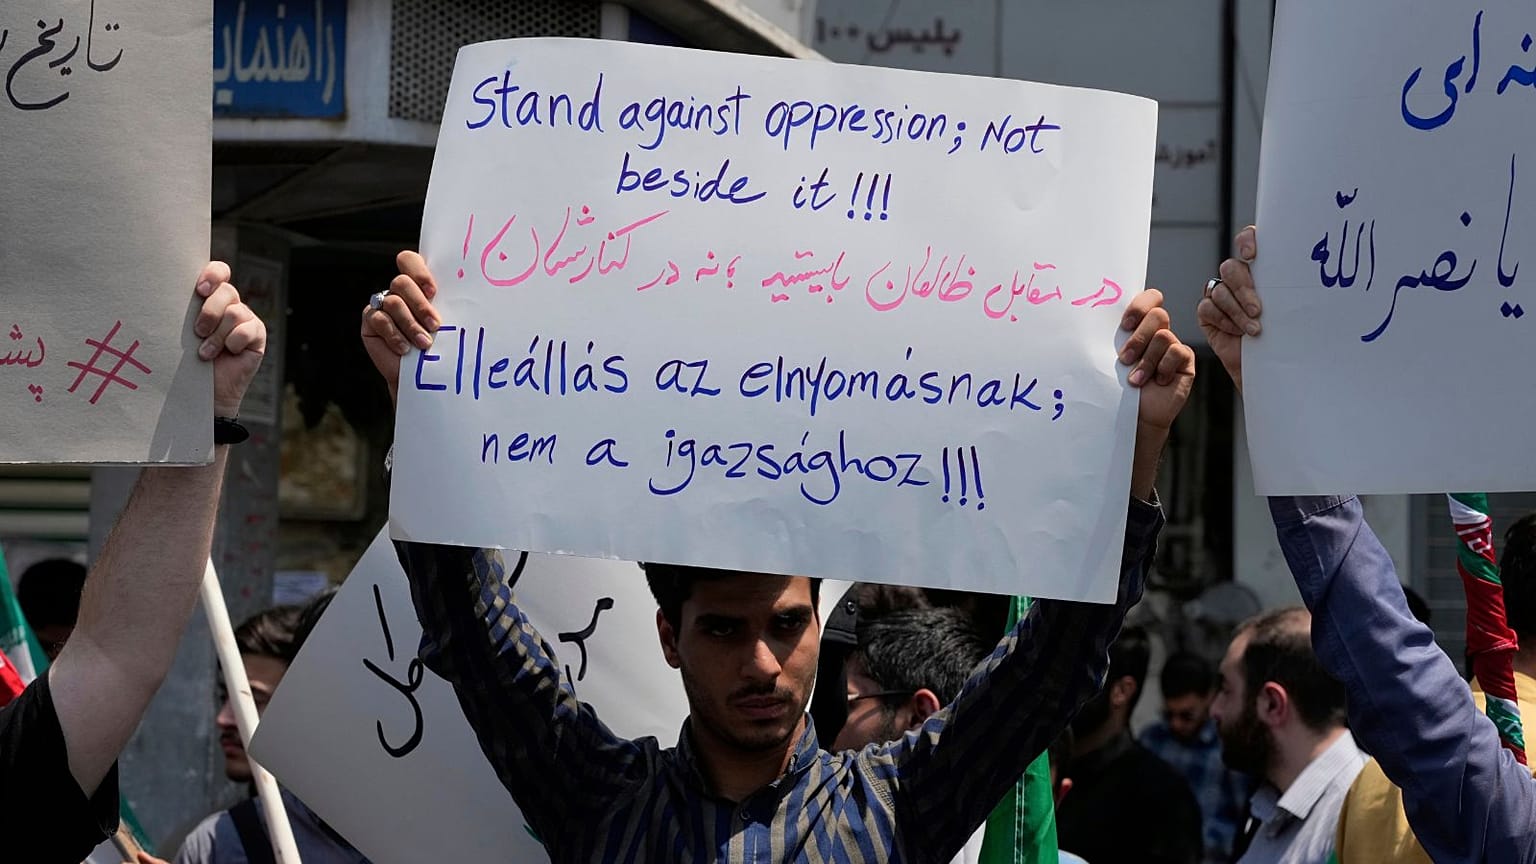 تاریخ
راهنمایی
پلیس ۱۰۰
Stand against oppression; Not
beside it!!!
در مقابل ظالمان بایستید ؛ نه در کنارشان!
Elleállás az elnyomásnak;
nem a igazsághoz!!!
یا نصر اللّه